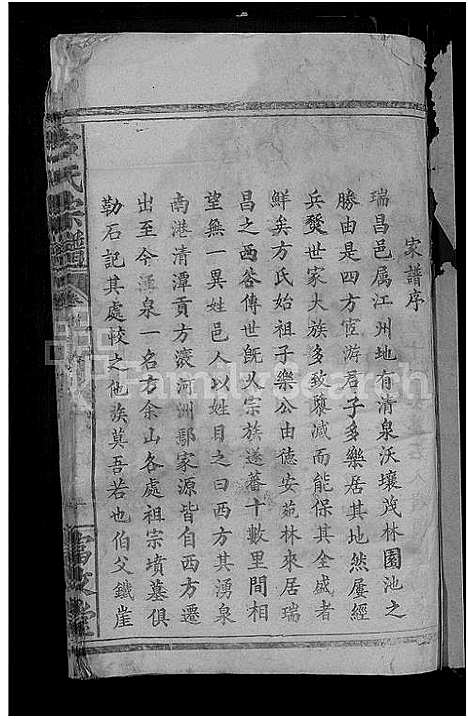 家譜序
瑞昌邑屬江州地有清泉沃壤茂林園池之
勝由是四方宦游君子多樂居其地然屢經
兵燹世家大族多致隳滅而能保其全盛者
鮮矣方氏始祖子樂公由德安苑林來居瑞
昌之西峇傳世旣久宗族遂蕃十數里間相
望無一異姓邑人以姓目之曰西方其湧泉
南港清潭貢方滾河洲鄢家源皆自西方遷
出至今湧泉一名方余山各處祖宗墳墓俱
勒石記其處較之他族莫吾若也伯父鐵崖
氏宗譜
FamilySearch